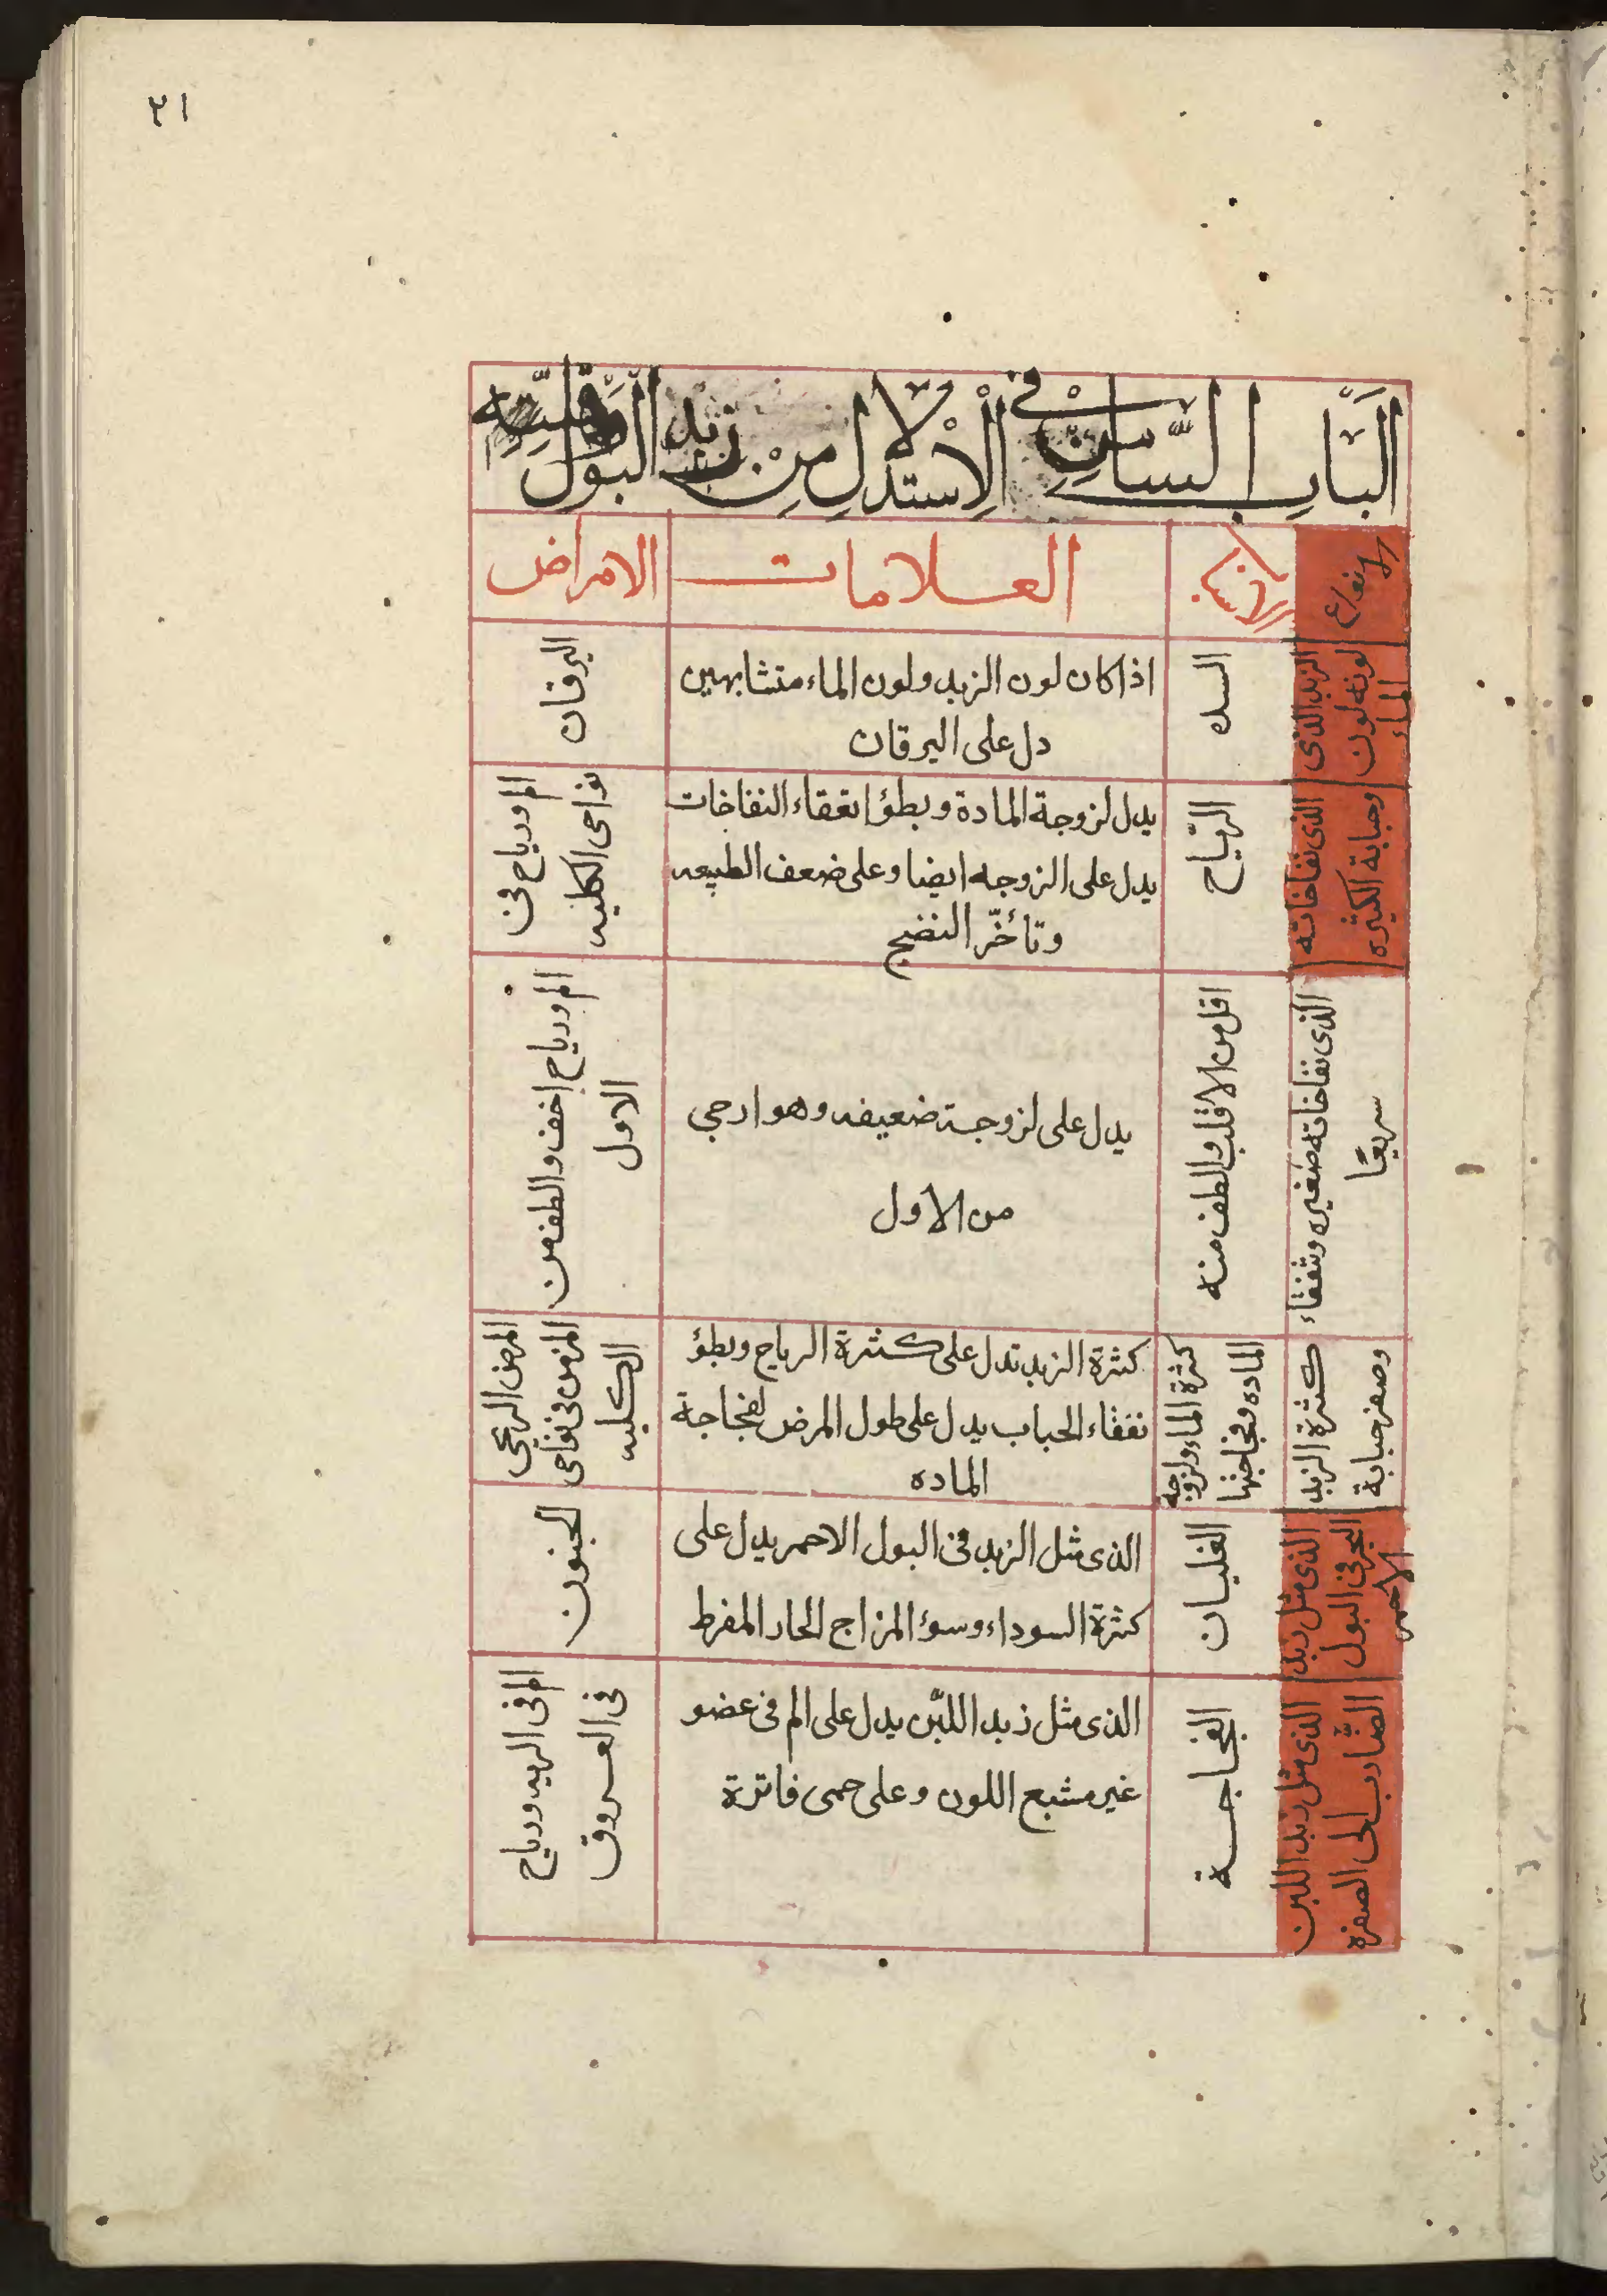 ٣١
الباب السادس في الاستدلال من زبد البول
الانواع
الاسباب
العلامات
الامراض
الزبد الذى
لونه لون
الماء
السده
اذا كان لون الزبد ولون الماء متشابهين
دل على اليرقان
اليرقان
الذى نفاخاته
وحبابة الكثيره
الرياح
يدل لزوجة المادة وبطؤ انفقاء النفاخات
يدل على الزوجه ايضا وعلى ضعف الطبيعه
وتأخّر النضج
الم ورياح فى
نواحى الكليه
الذى نفاخاته صغيره وتنفقاء
سريعًا
اقل من الاول والطف منه
يدل على لزوجة ضعيفه وهو ارجى
من الاول
الم ورياح اخف والطف من
الاول
كثرة الزبد
وصغر حبابة
كثرة الماء ولزوجة
الماده وفجاجتها
كثرة الزبد تدل على كثرة الرياح وبطؤ
نفقاء الحباب يدل على طول المرض لفجاجة
الماده
المرض الريحى
المزمن فى نواحى
الكليه
الذى مثل زبد
البحر فى البول
الاحمر
الغليان
الذى مثل الزبد فى البول الاحمر يدل على
كثرة السوداء وسوؤ المزاج الحار المفرط
الجنون
الذى مثل زبد اللبن
الضارب الى الصفره
الفجاجة
الذى مثل زبد اللبّن يدل على الم فى عضو
غير مشبع اللون وعلى حمى فاترة
الم فى الريه ورياح
فى العروق